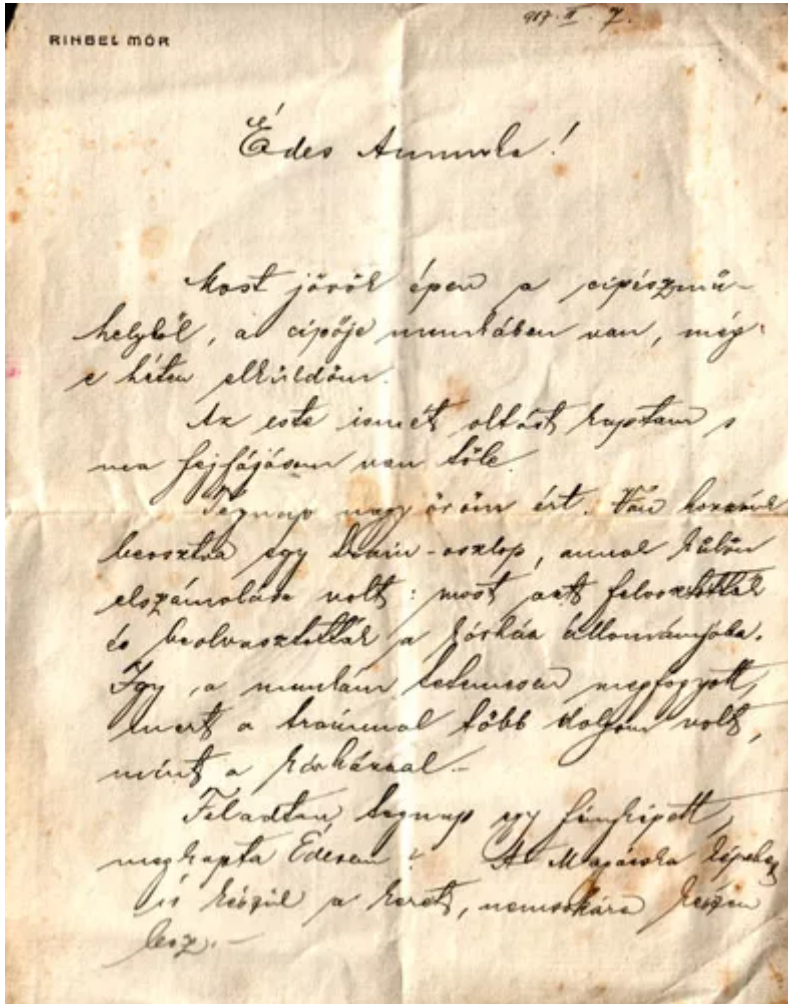 RINGEL MÓR
917. II. 7.
Édes Annuska!
Most jövök épen a cipészmű-
helyből, a cipője munkában van, még
e héten elküldöm.
Az este ismét oltást kaptam s
ma fejfájásom van tőle.
Tegnap nagy öröm ért. Van hozzánk
beosztva egy train-oszlop, annak külön
elszámolása volt: most azt feloszlatták
és beolvasztották a kórház állományába.
Így a munkám tetemesen megfogyott,
mert a trainnal több dolgom volt,
mint a kórházzal.-
Feladtam tegnap egy fényképet,
megkapta Édesem? A Magácska képéhez
is készül a keret, nemsokára készen
lesz.-